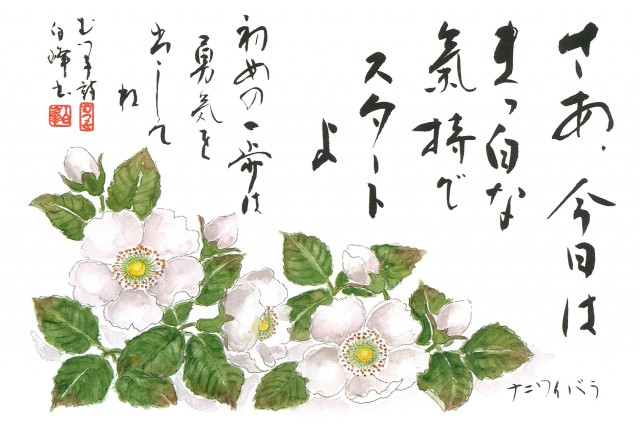 さあ、今日は
まっ白な
氣持で
スタート
よ
初めの一歩は
勇気を
出して
ね
白峰書
ナニワイバラ